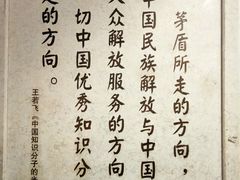 茅盾所走的方向，
中国民族解放与中国
大众解放服务的方向
切中国优秀知识分
走的方向。
王若飞《中国知识分子的